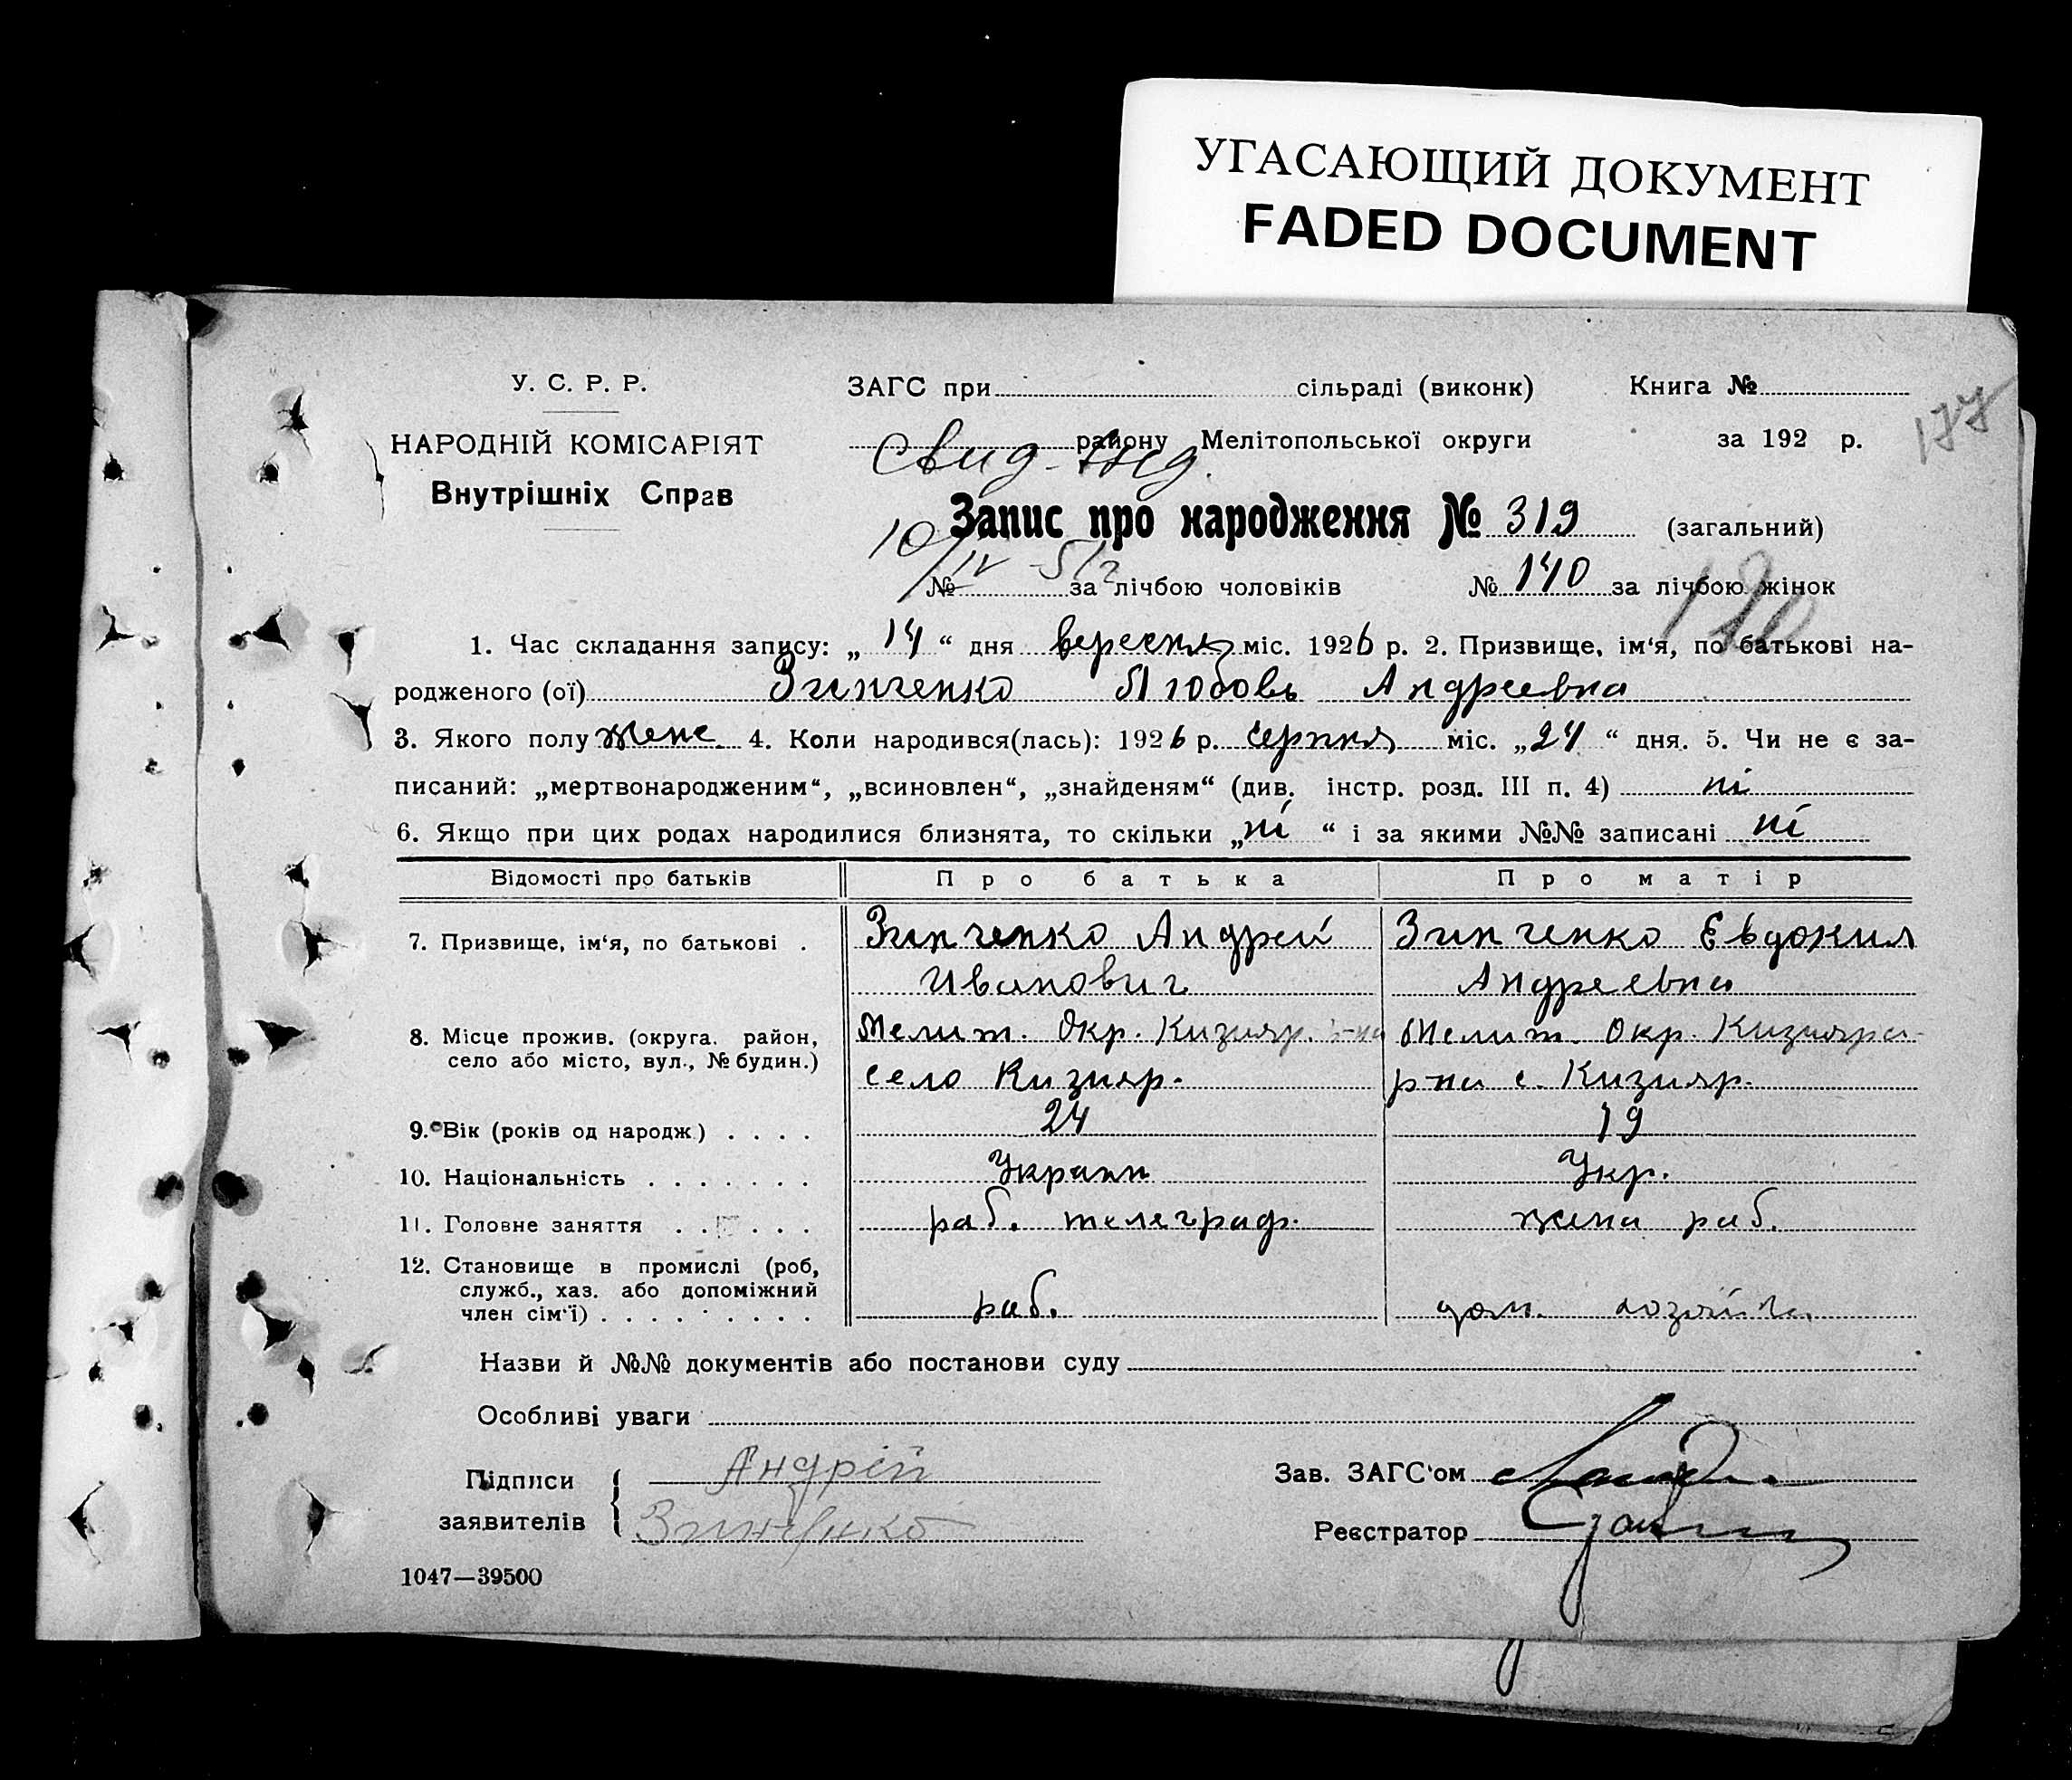 УГАСАЮЩИЙ ДОКУМЕНТ
FADED DOCUMENT
У. С. Р. Р.
НАРОДНІЙ КОМІСАРІЯТ
Внутрішніх Справ
ЗАГС при сільраді (виконк) Книга №
району Мелітопольської округи за 192 р.
177
Свид.
Запис про народження № 319 (загальний)
10/IV 51г
№ за лічбою чоловіків № 140 за лічбою жінок
1. Час складання запису: „14“ дня вересня міс. 1926 р. 2. Призвище, ім‘я, по батькові на-
родженого (ої) Зинченко Любовь Андреевна
3. Якого полу женс. 4. Коли народився(лась): 1926 р. серпня міс. „24“ дня. 5. Чи не є за-
писаний: „мертвонародженим“, „всиновлен“, „знайденям“ (див. інстр. розд. III п. 4) ні
6. Якщо при цих родах народилися близнята, то скільки „ні“ і за якими №№ записані ні
Відомості про батьків Про батька Про матір
7. Призвище, ім‘я, по батькові . Зинченко Андрей Зинченко Евдокия
Иванович Андреевна
8. Місце прожив. (округа. район, Мелит. Окр. Кизияр. р-на Мелит. Окр. Кизияра-
село або місто, вул., № будин.) село Кизияр. р-на с. Кизияр.
9. Вік (років од народж) . . . . 24 19
10. Національність . . . . . . . Украин Укр.
11. Головне заняття . . . . . раб. телеграф. жена раб.
12. Становище в промислі (роб,
служб., хаз. або допоміжний
член сім‘ї) . . . . . . . . раб. дом. хозяйка.
Назви й №№ документів або постанови суду
Особливі уваги
Підписи Андрій
заявителів Зинченко
Зав. ЗАГС‘ом
Реєстратор
1047—39500